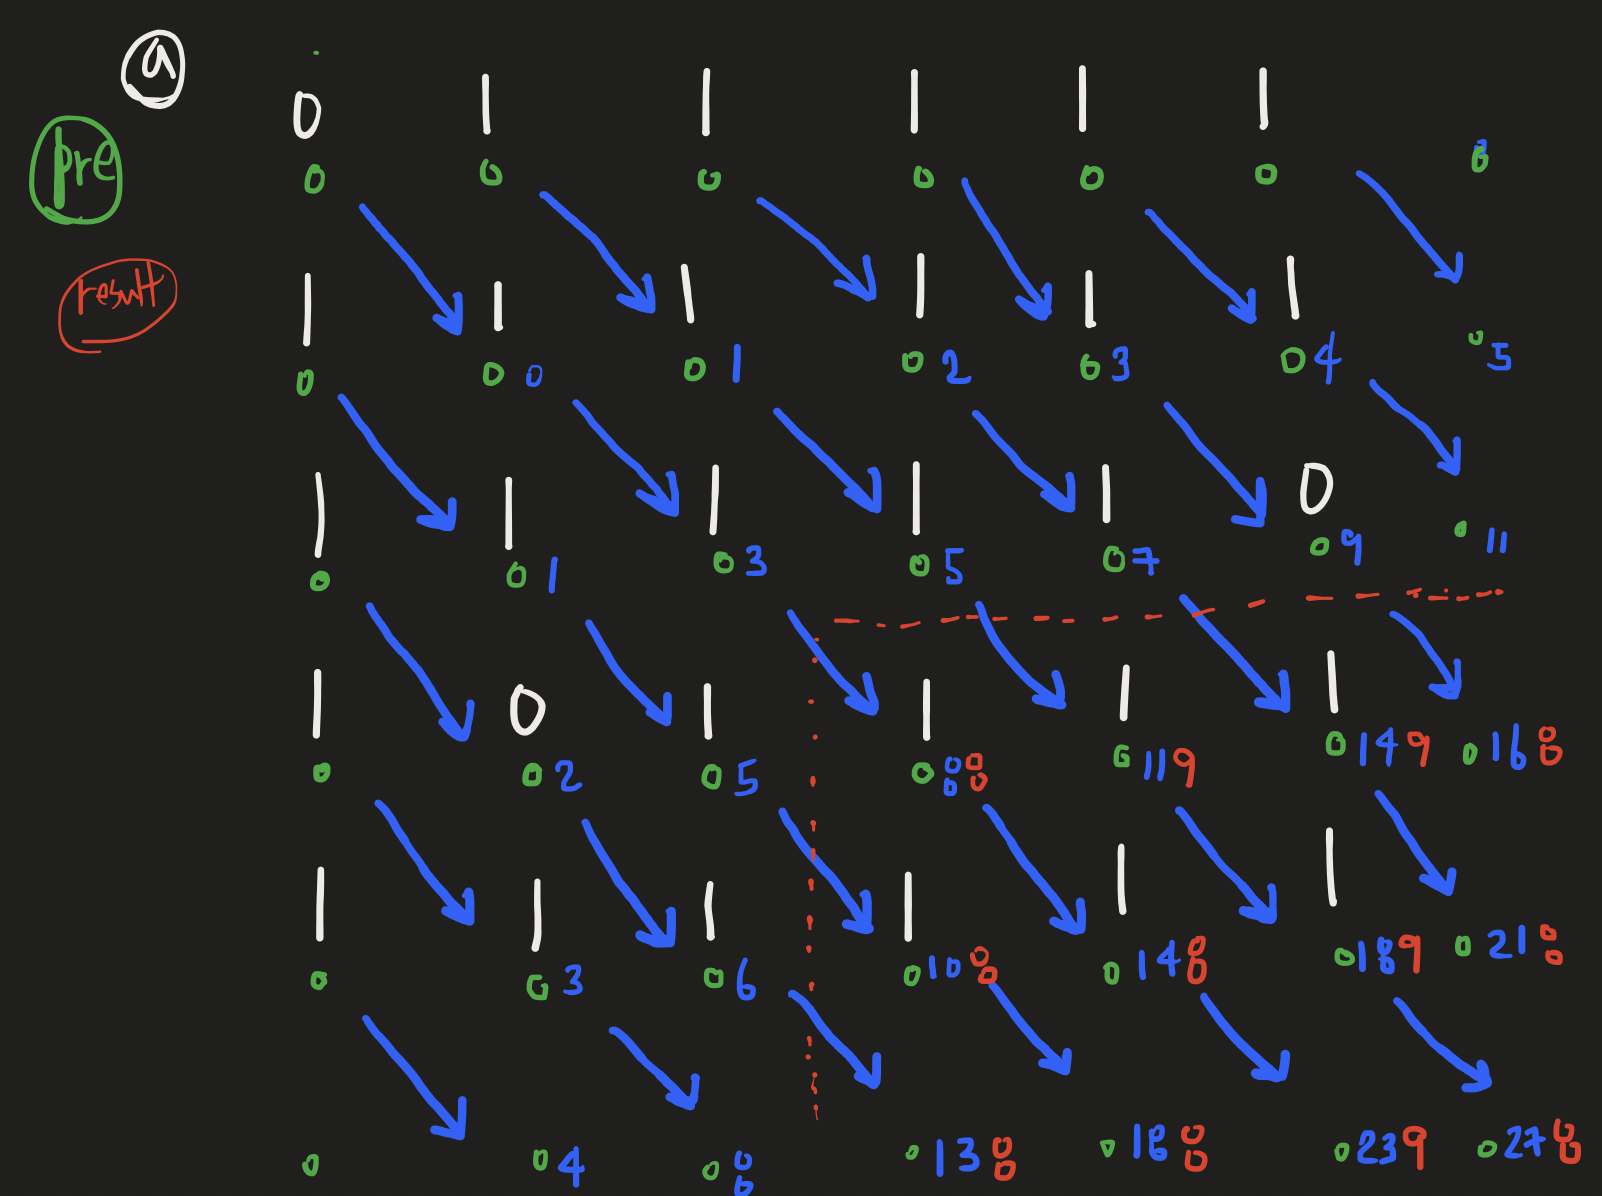 a
0 1 1 1 1 1
pre
0 0 0 0 0 0
result
1 1 1 1 1 1
0 0 0 0 1 0 2 0 3 0 4 0 5
1 1 1 1 1 0
0 0 1 0 3 0 5 0 7 0 9 0 11
1 0 1 1 1 1
0 0 2 0 5 0 8 8 0 11 9 0 14 9 0 16 8
1 1 1 1 1 1
0 0 3 0 6 0 10 8 0 14 8 0 18 9 0 21 8
0 0 4 0 8 0 13 8 0 18 8 0 23 9 0 27 8